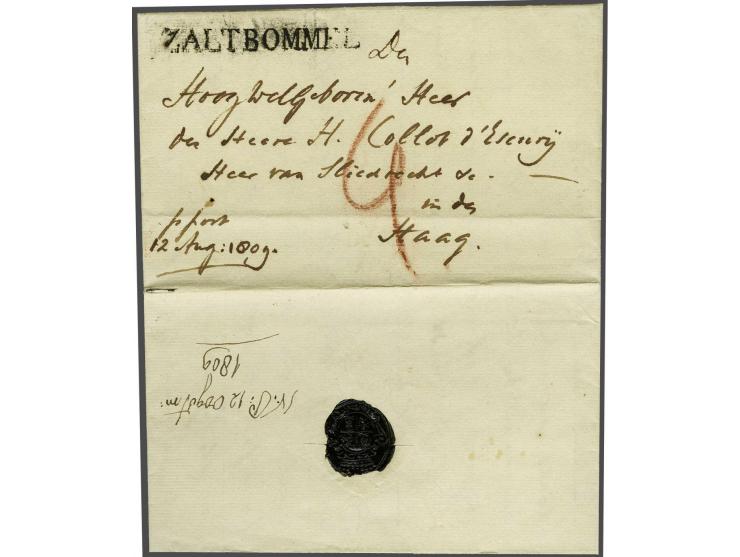 ZALTBOMMEL
Den
HoogWelGeboren Heer
den Heere H. Collot d'Escurij
Heer van Sliedrecht &c.
in den
Haag.
p post
12 Aug: 1809.
4
1809
12 Aug